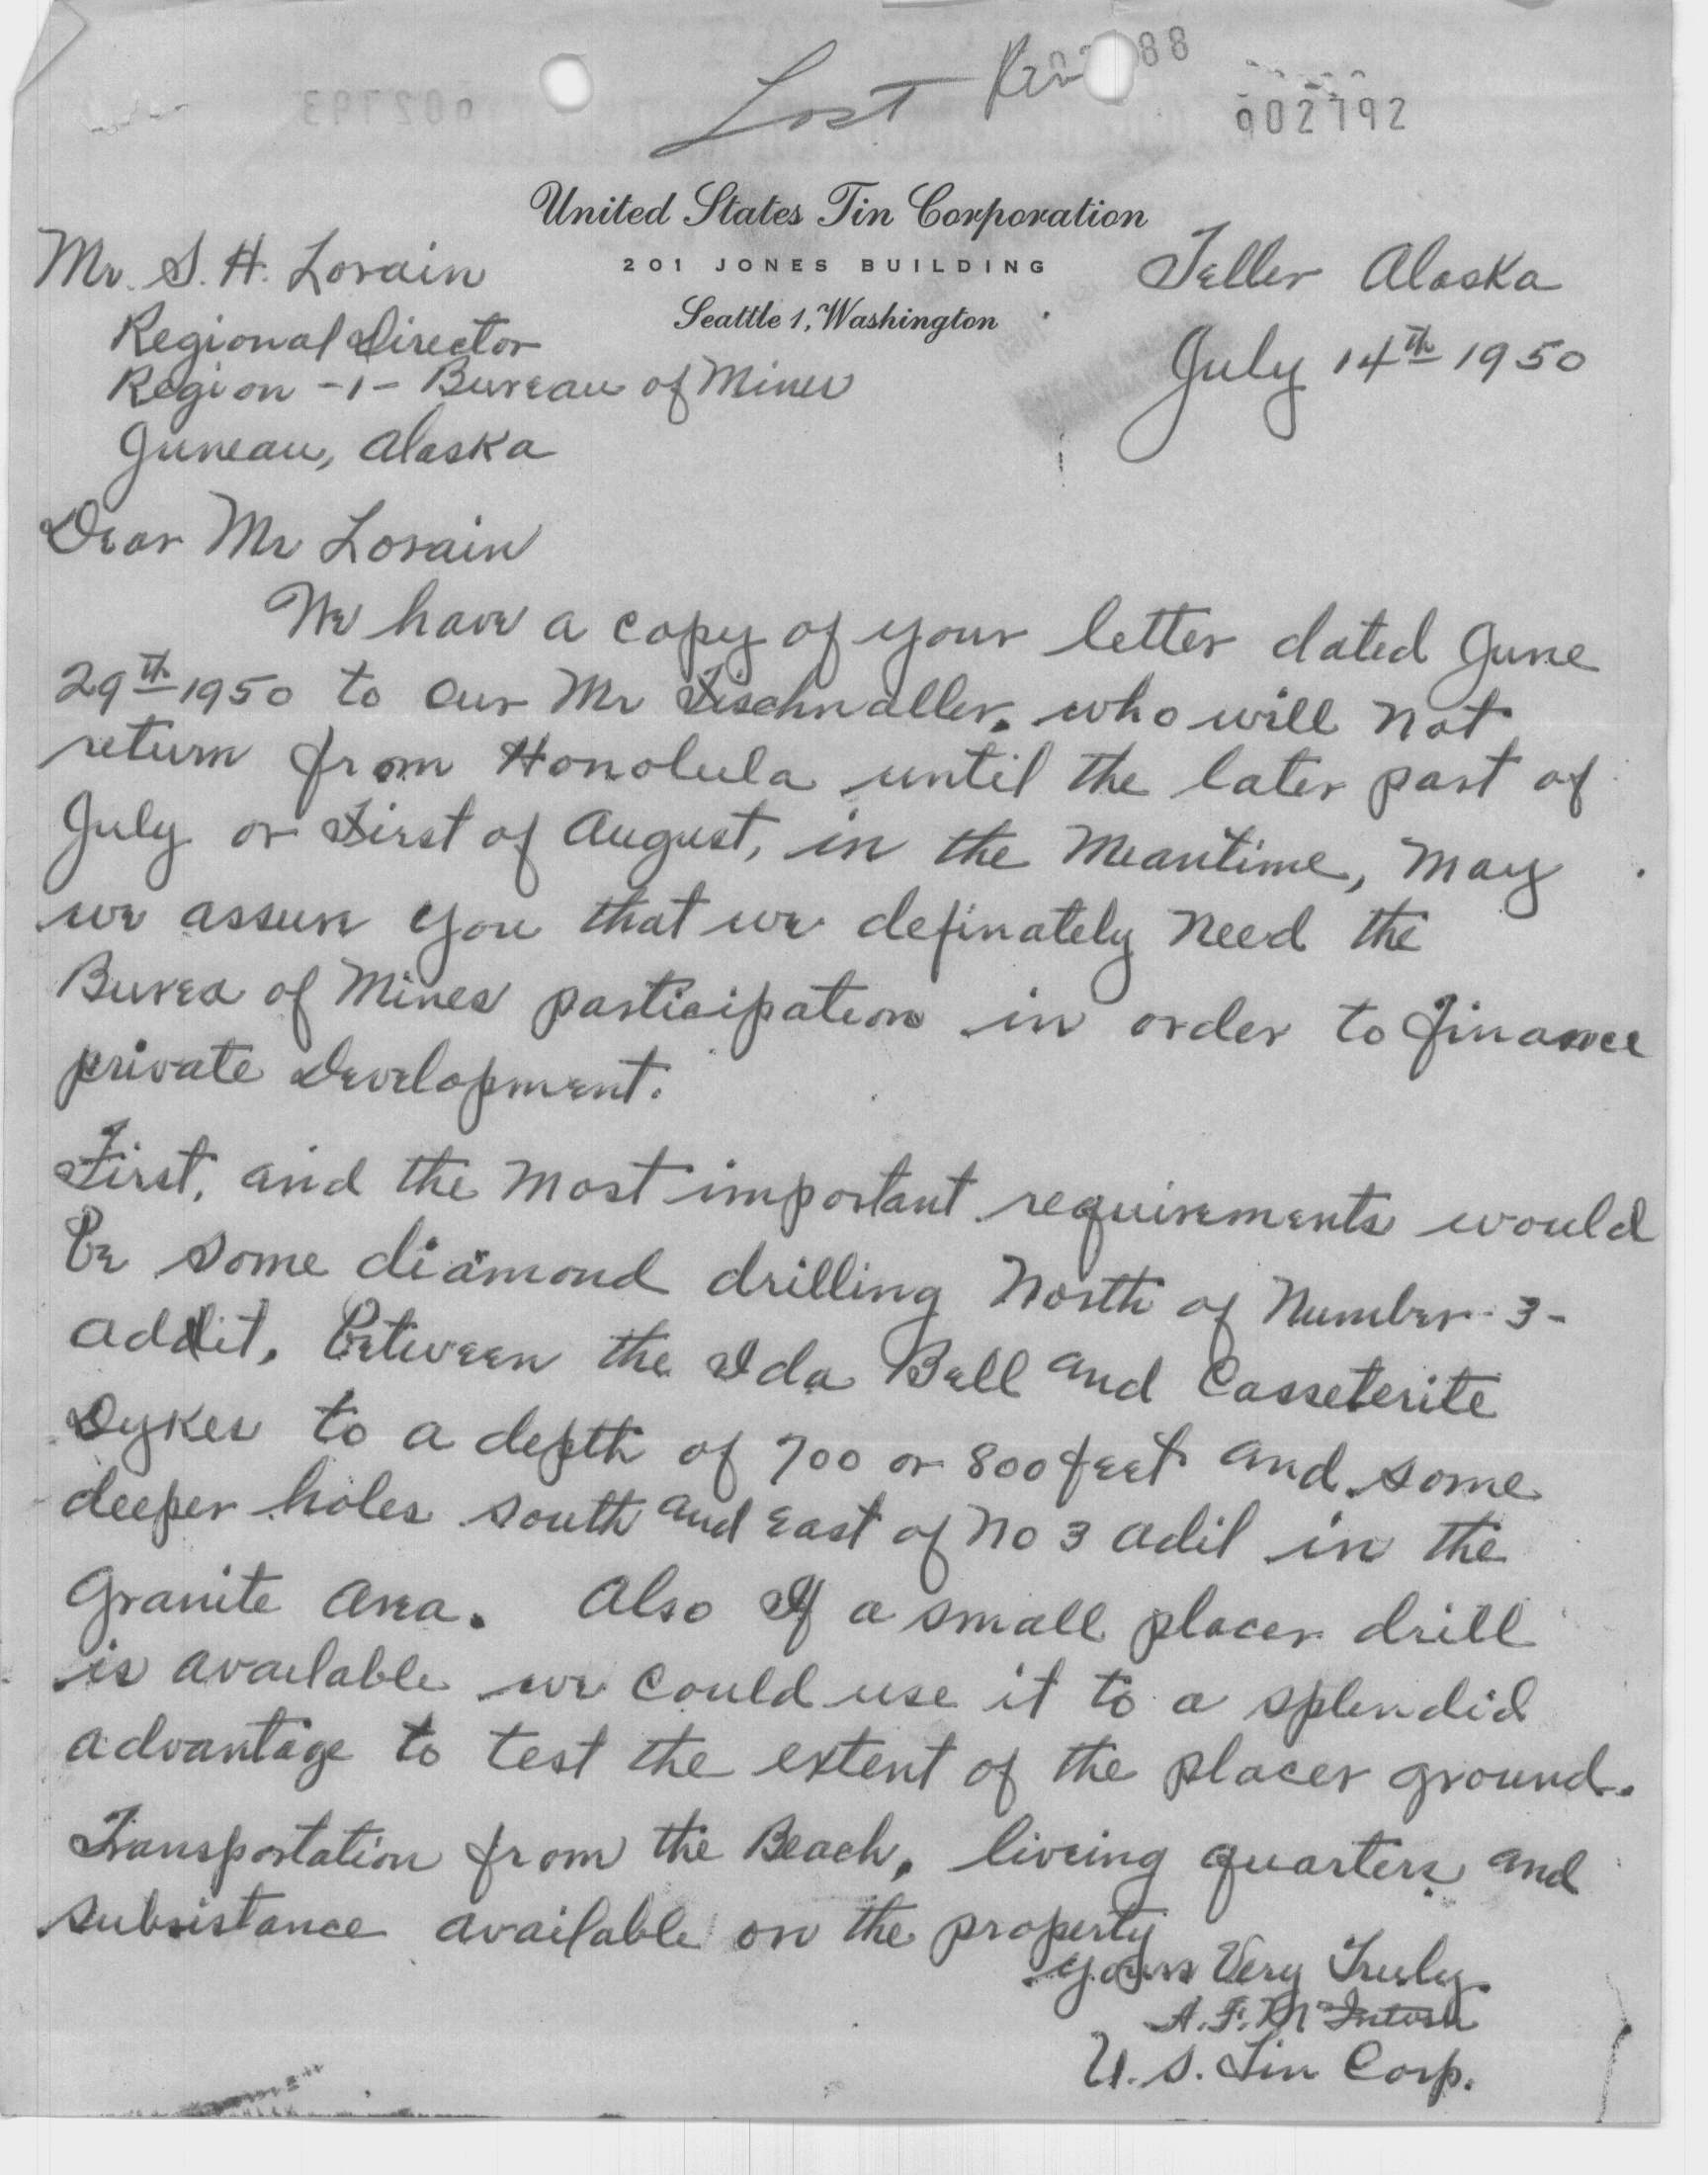 Lost
88
002792
002793
United States Tin Corporation
201 JONES BUILDING
Seattle 1, Washington
Teller Alaska
July 14th 1950
Mr. S. H. Lorain
Regional Director
Region -1- Bureau of Mines
Juneau, Alaska
Dear Mr Lorain
We have a copy of your letter dated June
29th 1950 to our Mr Fischnaller. who will not
return from Honolula until the later part of
July or First of August, in the Meantime, May
we assure you that we definately need the
Burea of Mines participation in order to finance
private Development.
First, and the Most important requirements would
Be some diamond drilling North of Number 3-
addit, Between the Ida Bell and Casseterite
Dykes to a depth of 700 or 800 feet and some
deeper holes south and East of No 3 adit in the
Granite Area. Also If a small placer drill
is available we could use it to a splendid
advantage to test the extent of the placer ground.
Transportation from the Beach, living quarters and
subsistance available on the property
Yours Very Truly.
A. F. McIntosh
U. S. Tin Corp.